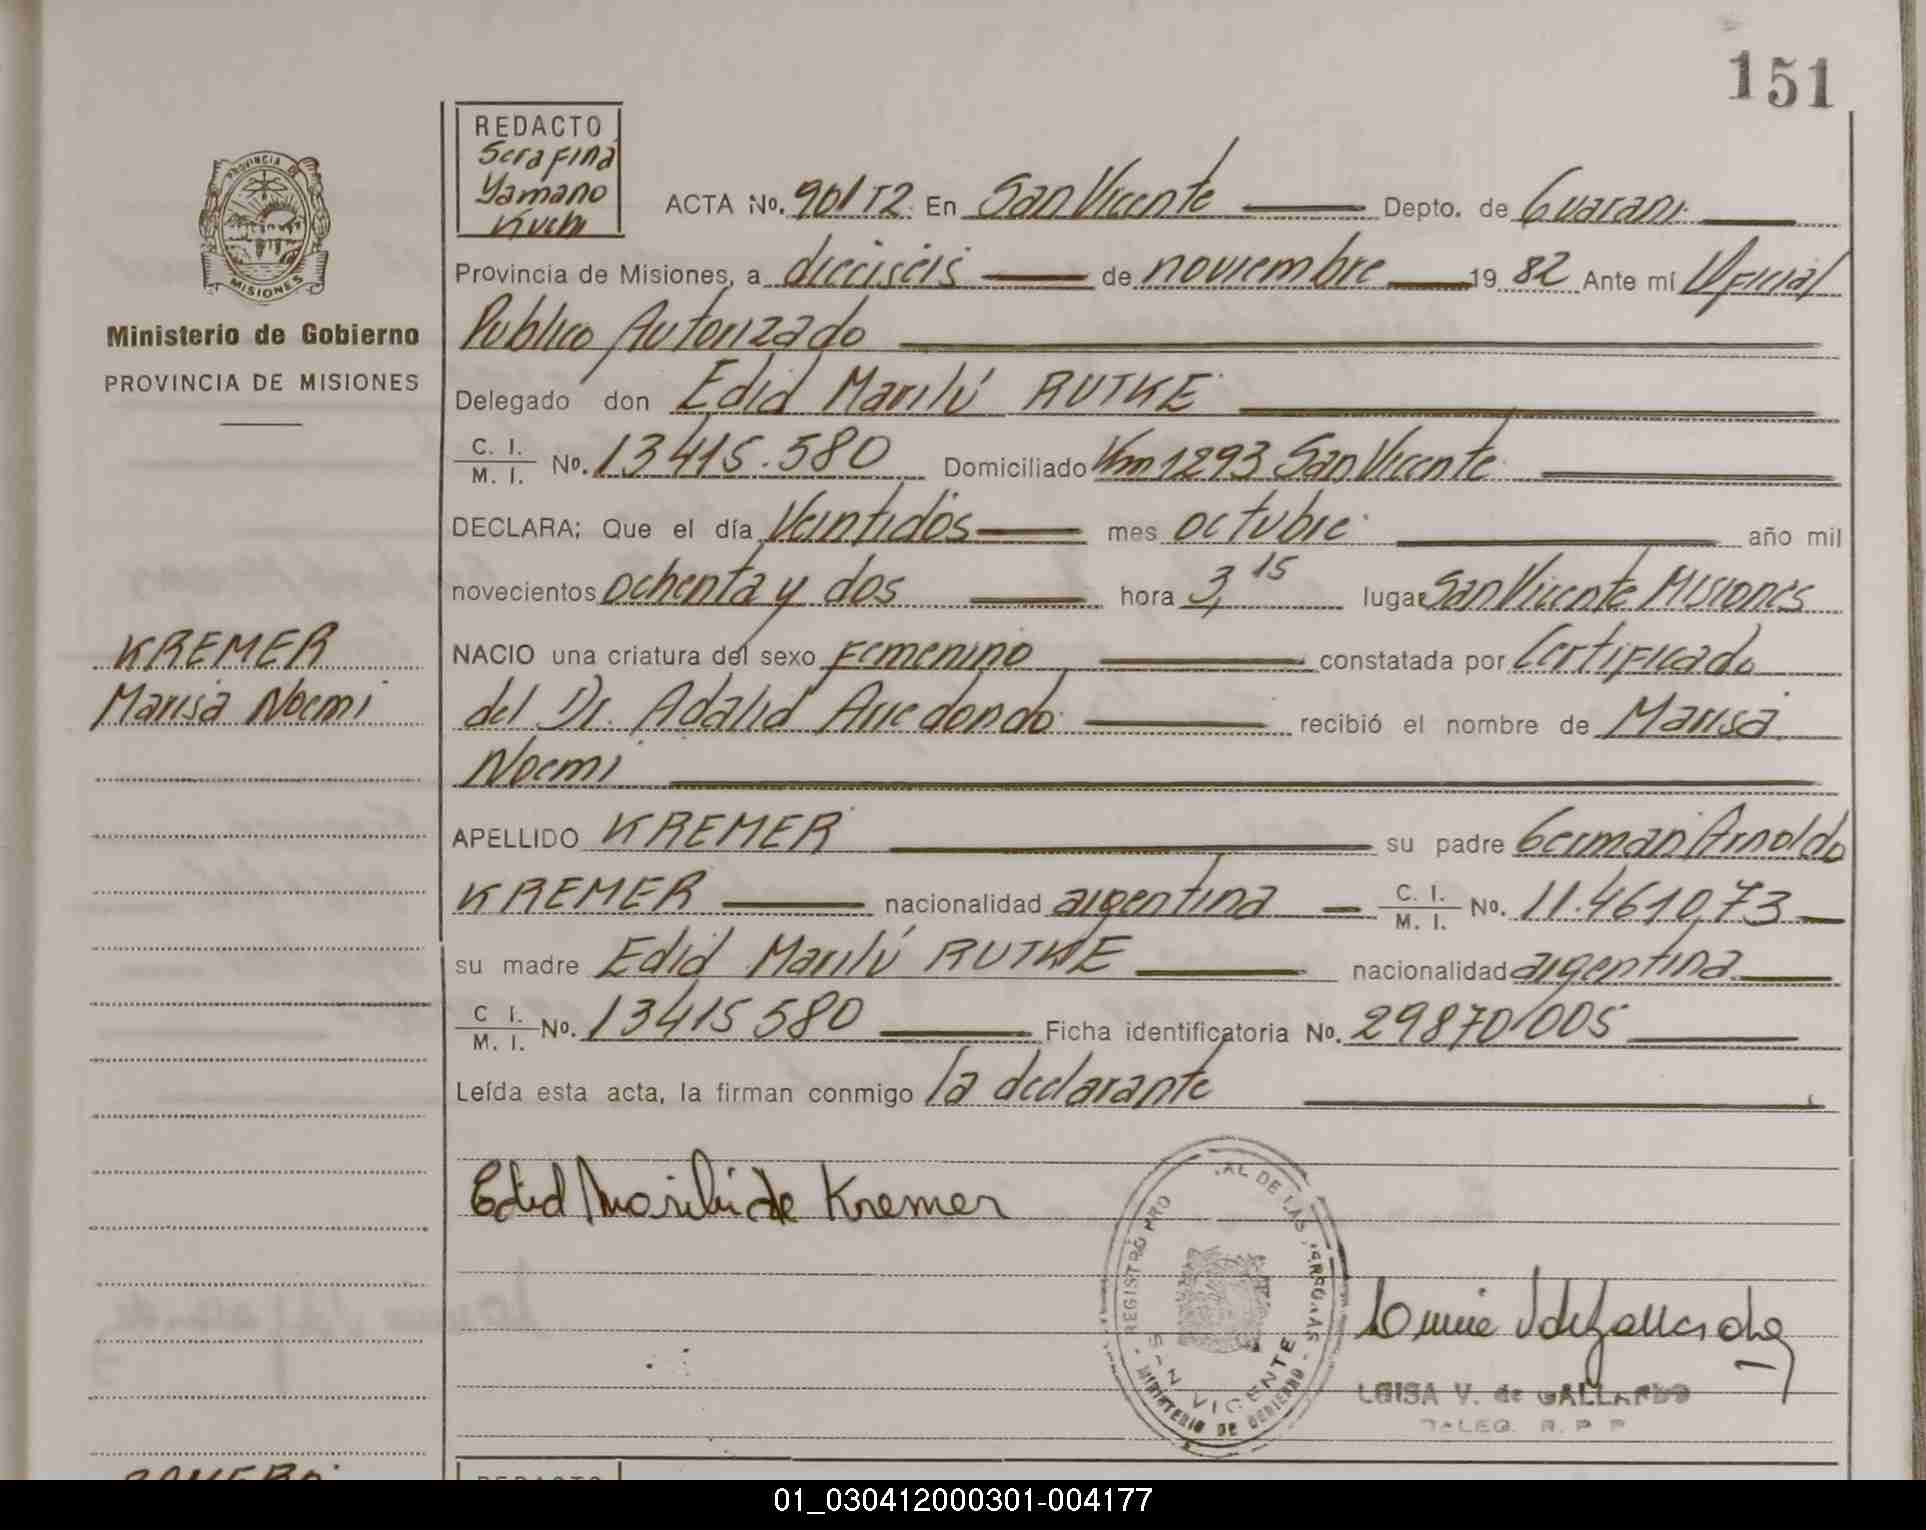 151
REDACTO
Serafina
Yamano
Kuchi
PROVINCIA
MISIONES
Ministerio de Gobierno
PROVINCIA DE MISIONES
ACTA No. 901 T2 En San Vicente Depto. de Guarani
Provincia de Misiones, a dieciseis de noviembre 19 82 Ante mí Oficial
Publico Autorizado
Delegado don Edid Marilú RUTKE
C. I. / M. I. No. 13415.580 Domiciliado Km 1293 San Vicente
DECLARA; Que el día Veintidós mes octubre año mil
novecientos ochenta y dos hora 3,15 lugar San Vicente Misiones
NACIO una criatura del sexo Femenino constatada por Certificado
del Dr. Adalid Arredondo recibió el nombre de Marisa
Noemi
KREMER
Marisa Noemi
APELLIDO KREMER su padre German Arnoldo
KREMER nacionalidad argentina C. I. / M. I. No. 11.461073
su madre Edid Marilú RUTKE nacionalidad argentina
C I. / M. I. No. 13415580 Ficha identificatoria No. 29870/005
Leída esta acta, la firman conmigo la declarante
Edid Marilú de Kremer
REGISTRO PRO AL DE LAS PERSONAS
SAN VICENTE
MINISTERIO DE GOBIERNO
LUISA V. de GALLARDO
DELEG. R. P. P
REDACTO
01_030412000301-004177